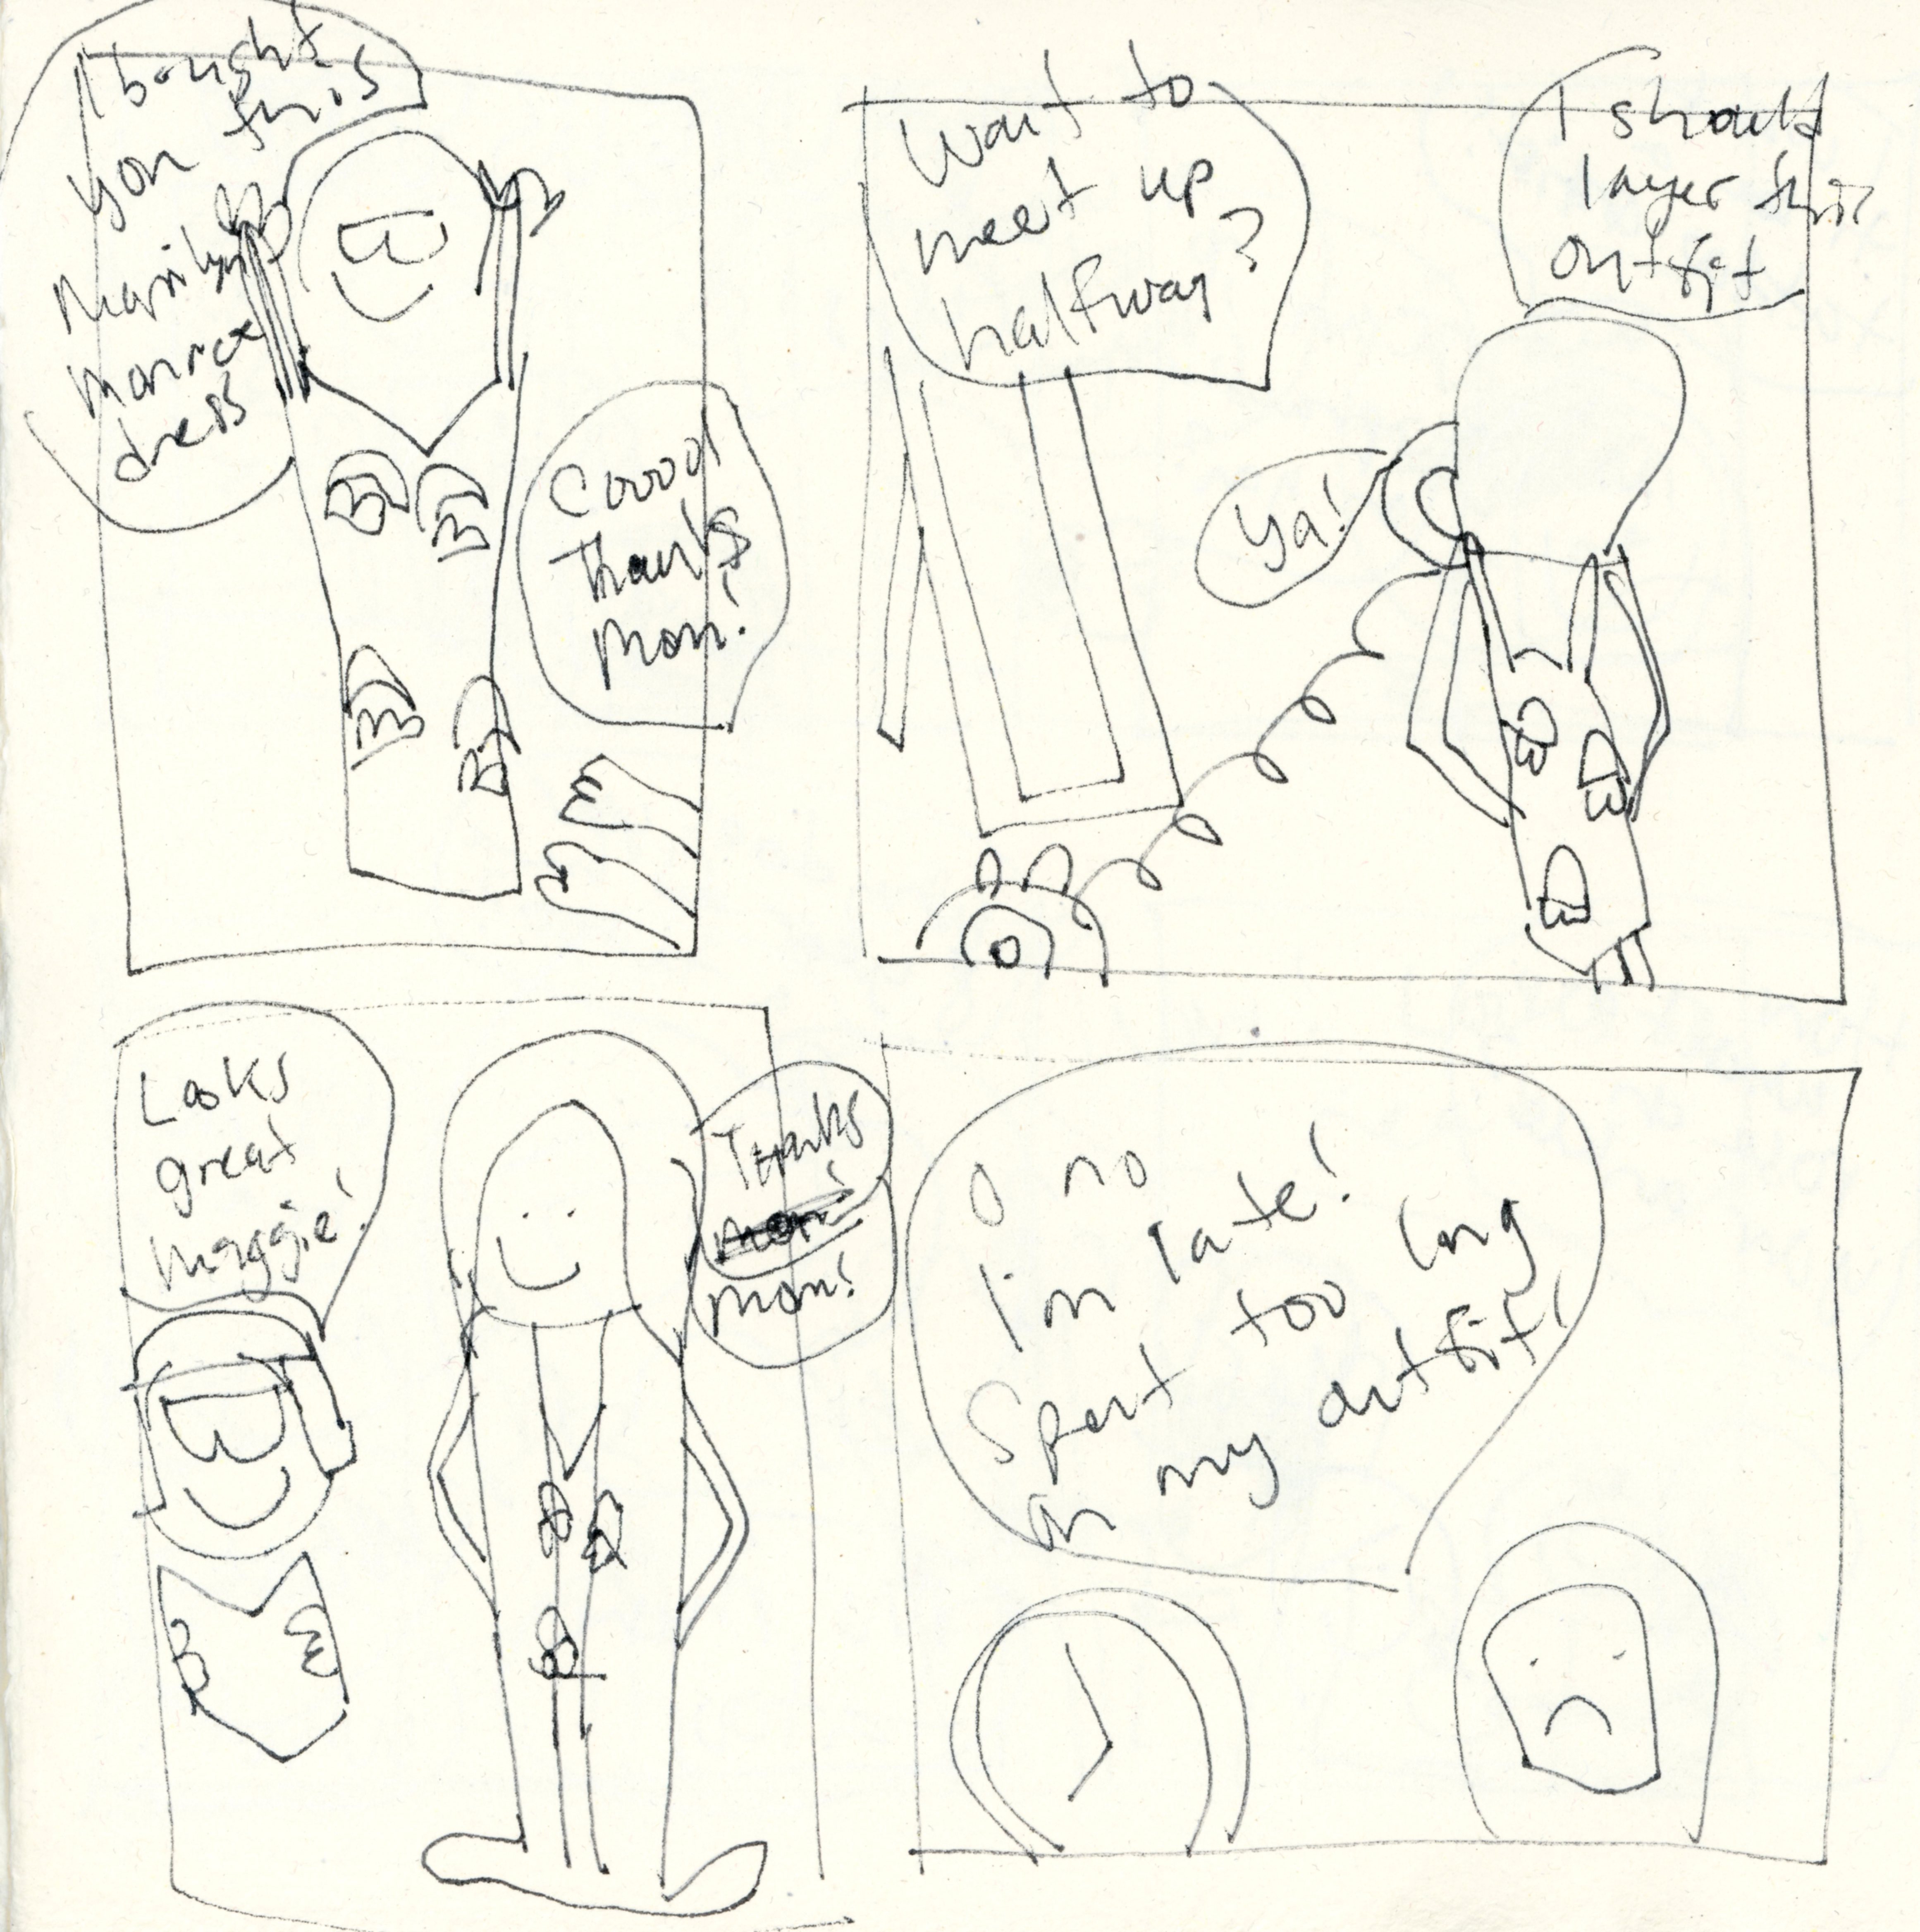 I bought
you this
Marilyn
Monroe
dress
Cooool
Thanks
mom!
Want to
meet up
halfway?
Ya!
I should
layer this
outfit
Looks
great
Maggie!
Thanks
mom!
mom!
O no
I'm late!
Spent too long
on my outfit!